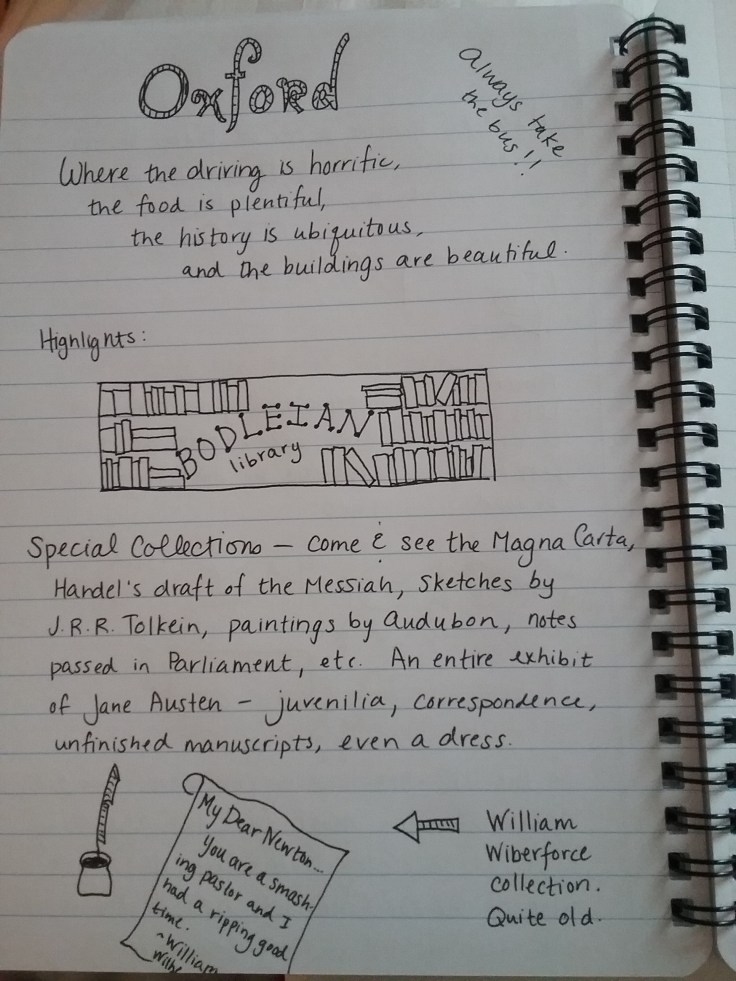 Oxford
Always take
the bus!!
Where the driving is horrific,
the food is plentiful,
the history is ubiquitous,
and the buildings are beautiful.
Highlights:
BODLEIAN
library
Special Collections – Come & see the Magna Carta,
Handel's draft of the Messiah, sketches by
J.R.R. Tolkein, paintings by Audubon, notes
passed in Parliament, etc. An entire exhibit
of Jane Austen – juvenilia, correspondence,
unfinished manuscripts, even a dress.
My Dear Newton...
You are a smash-
ing pastor and I
had a ripping good
time.
~William
William
Wiberforce
collection.
Quite old.